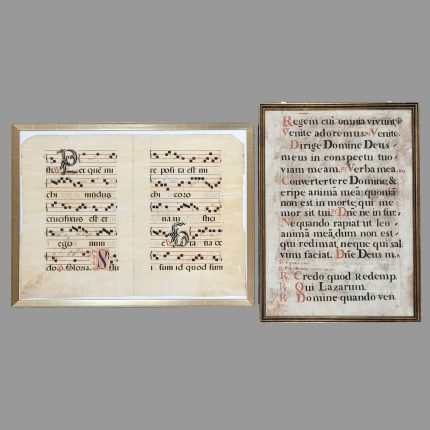 Per quē mi
chi mūdus
crucifixus est et
ego mun
do. Gloria.
re posita est mi
chi coro
na ius
Gra na ce
i sum id quod sum
Regem cui omnia vivunt,
Venite adoremus. Venite
Dirige Domine Deus
meus in conspectu tuo
viam meam. Verba mea
Convertertere Domine, &
eripe animā mea: quonia
non est in morte, qui me
mor sit tui. Dn̄e ne in fur
Nequando rapiat ut leo
animā meā, dum non est
qui redimat, neque qui sal
vum faciat. Dn̄e Deus m
R. Credo quod Redemp.
R. Qui Lazarum.
R. Domine quando ven.